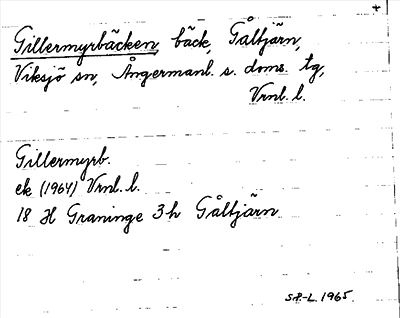 Gillermyrbäcken, bäck, Gåltjärn,
Viksjö sn, Ångermanl. s. doms. tg,
Vrnl. l.
Gillermyrb.
ek (1964) Vrnl. l.
18 H Graninge 3h Gåltjärn
S.P-L. 1965.